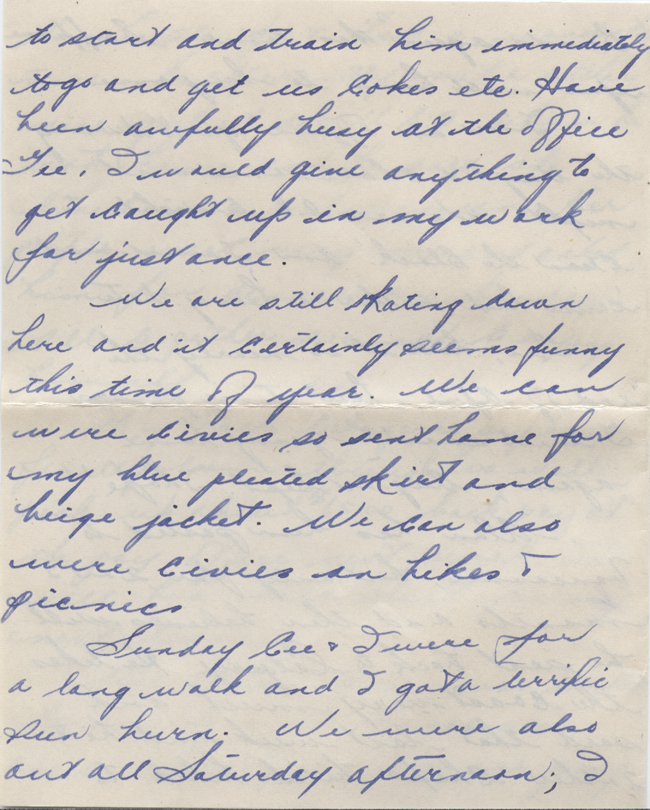 to start and train him immediately
to go and get us Cokes etc. Have
been awfully busy at the office
Gee, I would give anything to
get caught up in my work
for just once.
We are still skating down
here and it certainly seems funny
this time of year. We can
were Civies so sent home for
my blue pleated skirt and
beige jacket. We can also
were Civies on hikes &
picnics
Sunday Cee & I were for
a long walk and I got a terrific
sun burn. We were also
out all Saturday afternoon; I